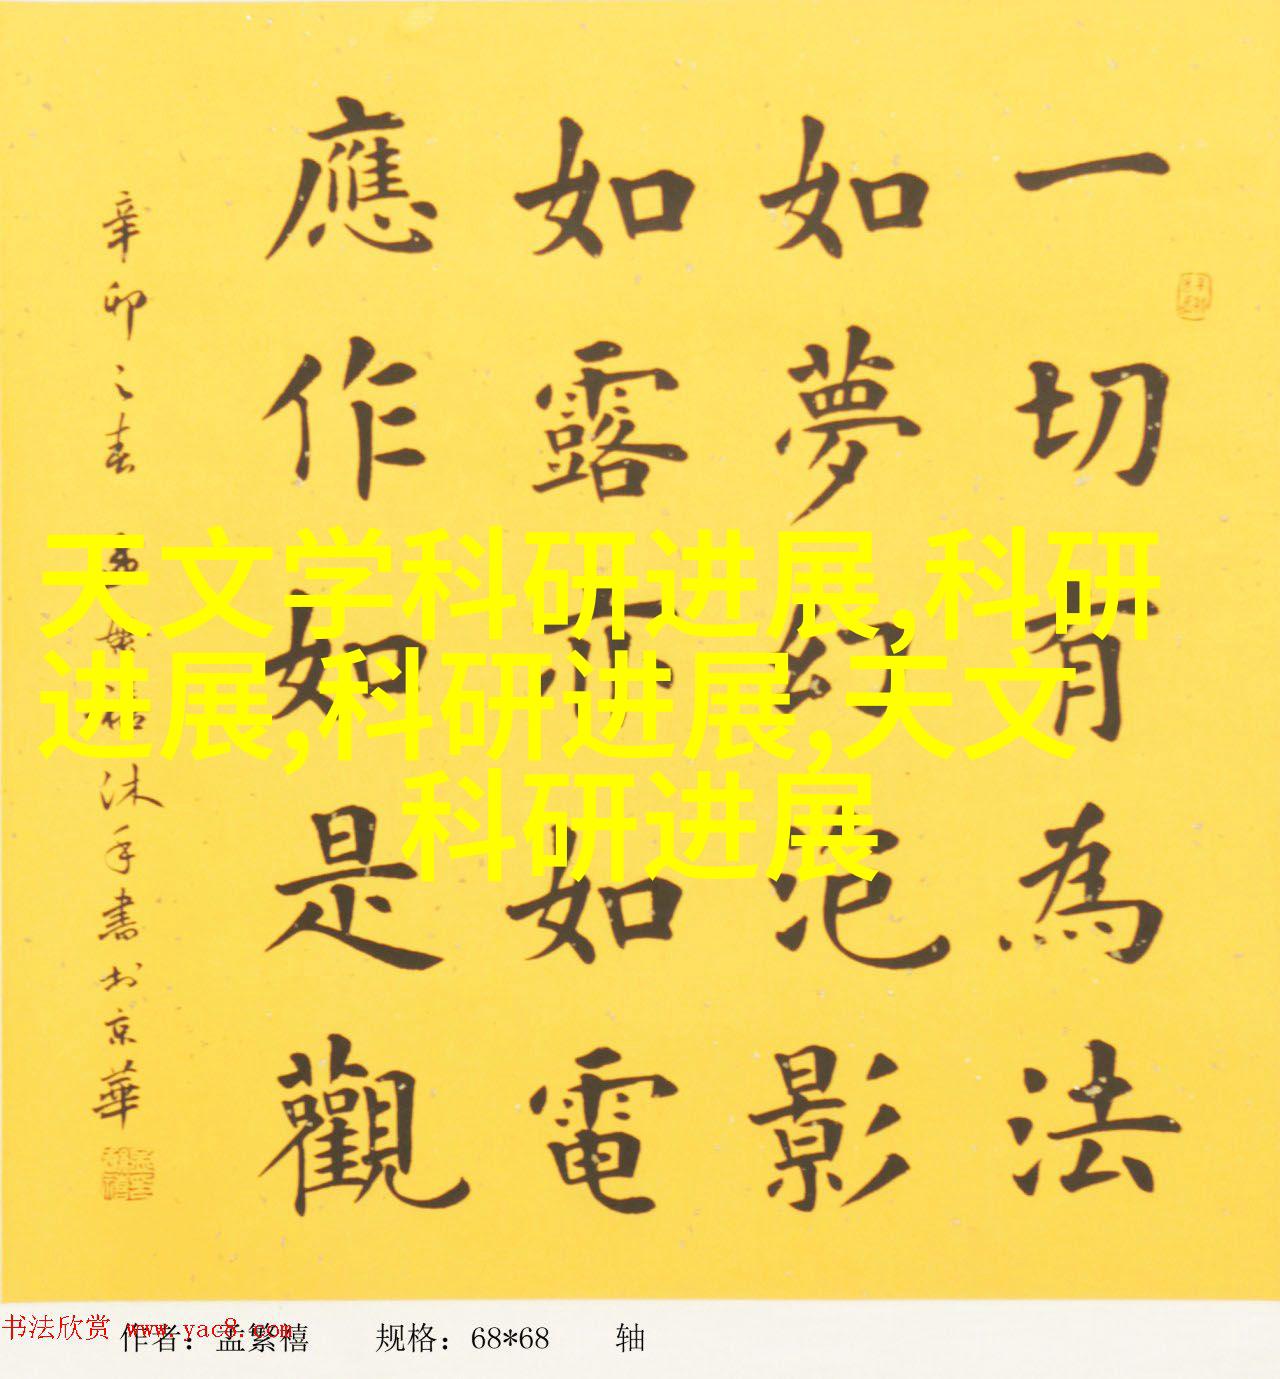 一切有為法
如夢幻泡影
如露亦如電
應作如是觀
辛卯之春 孟繁禧沐手書於京華
天文学科研进展,科研
进展,科研进展,天文
科研进展
书法欣赏 www.yac8.com
作者：孟繁禧 规格：68*68 轴